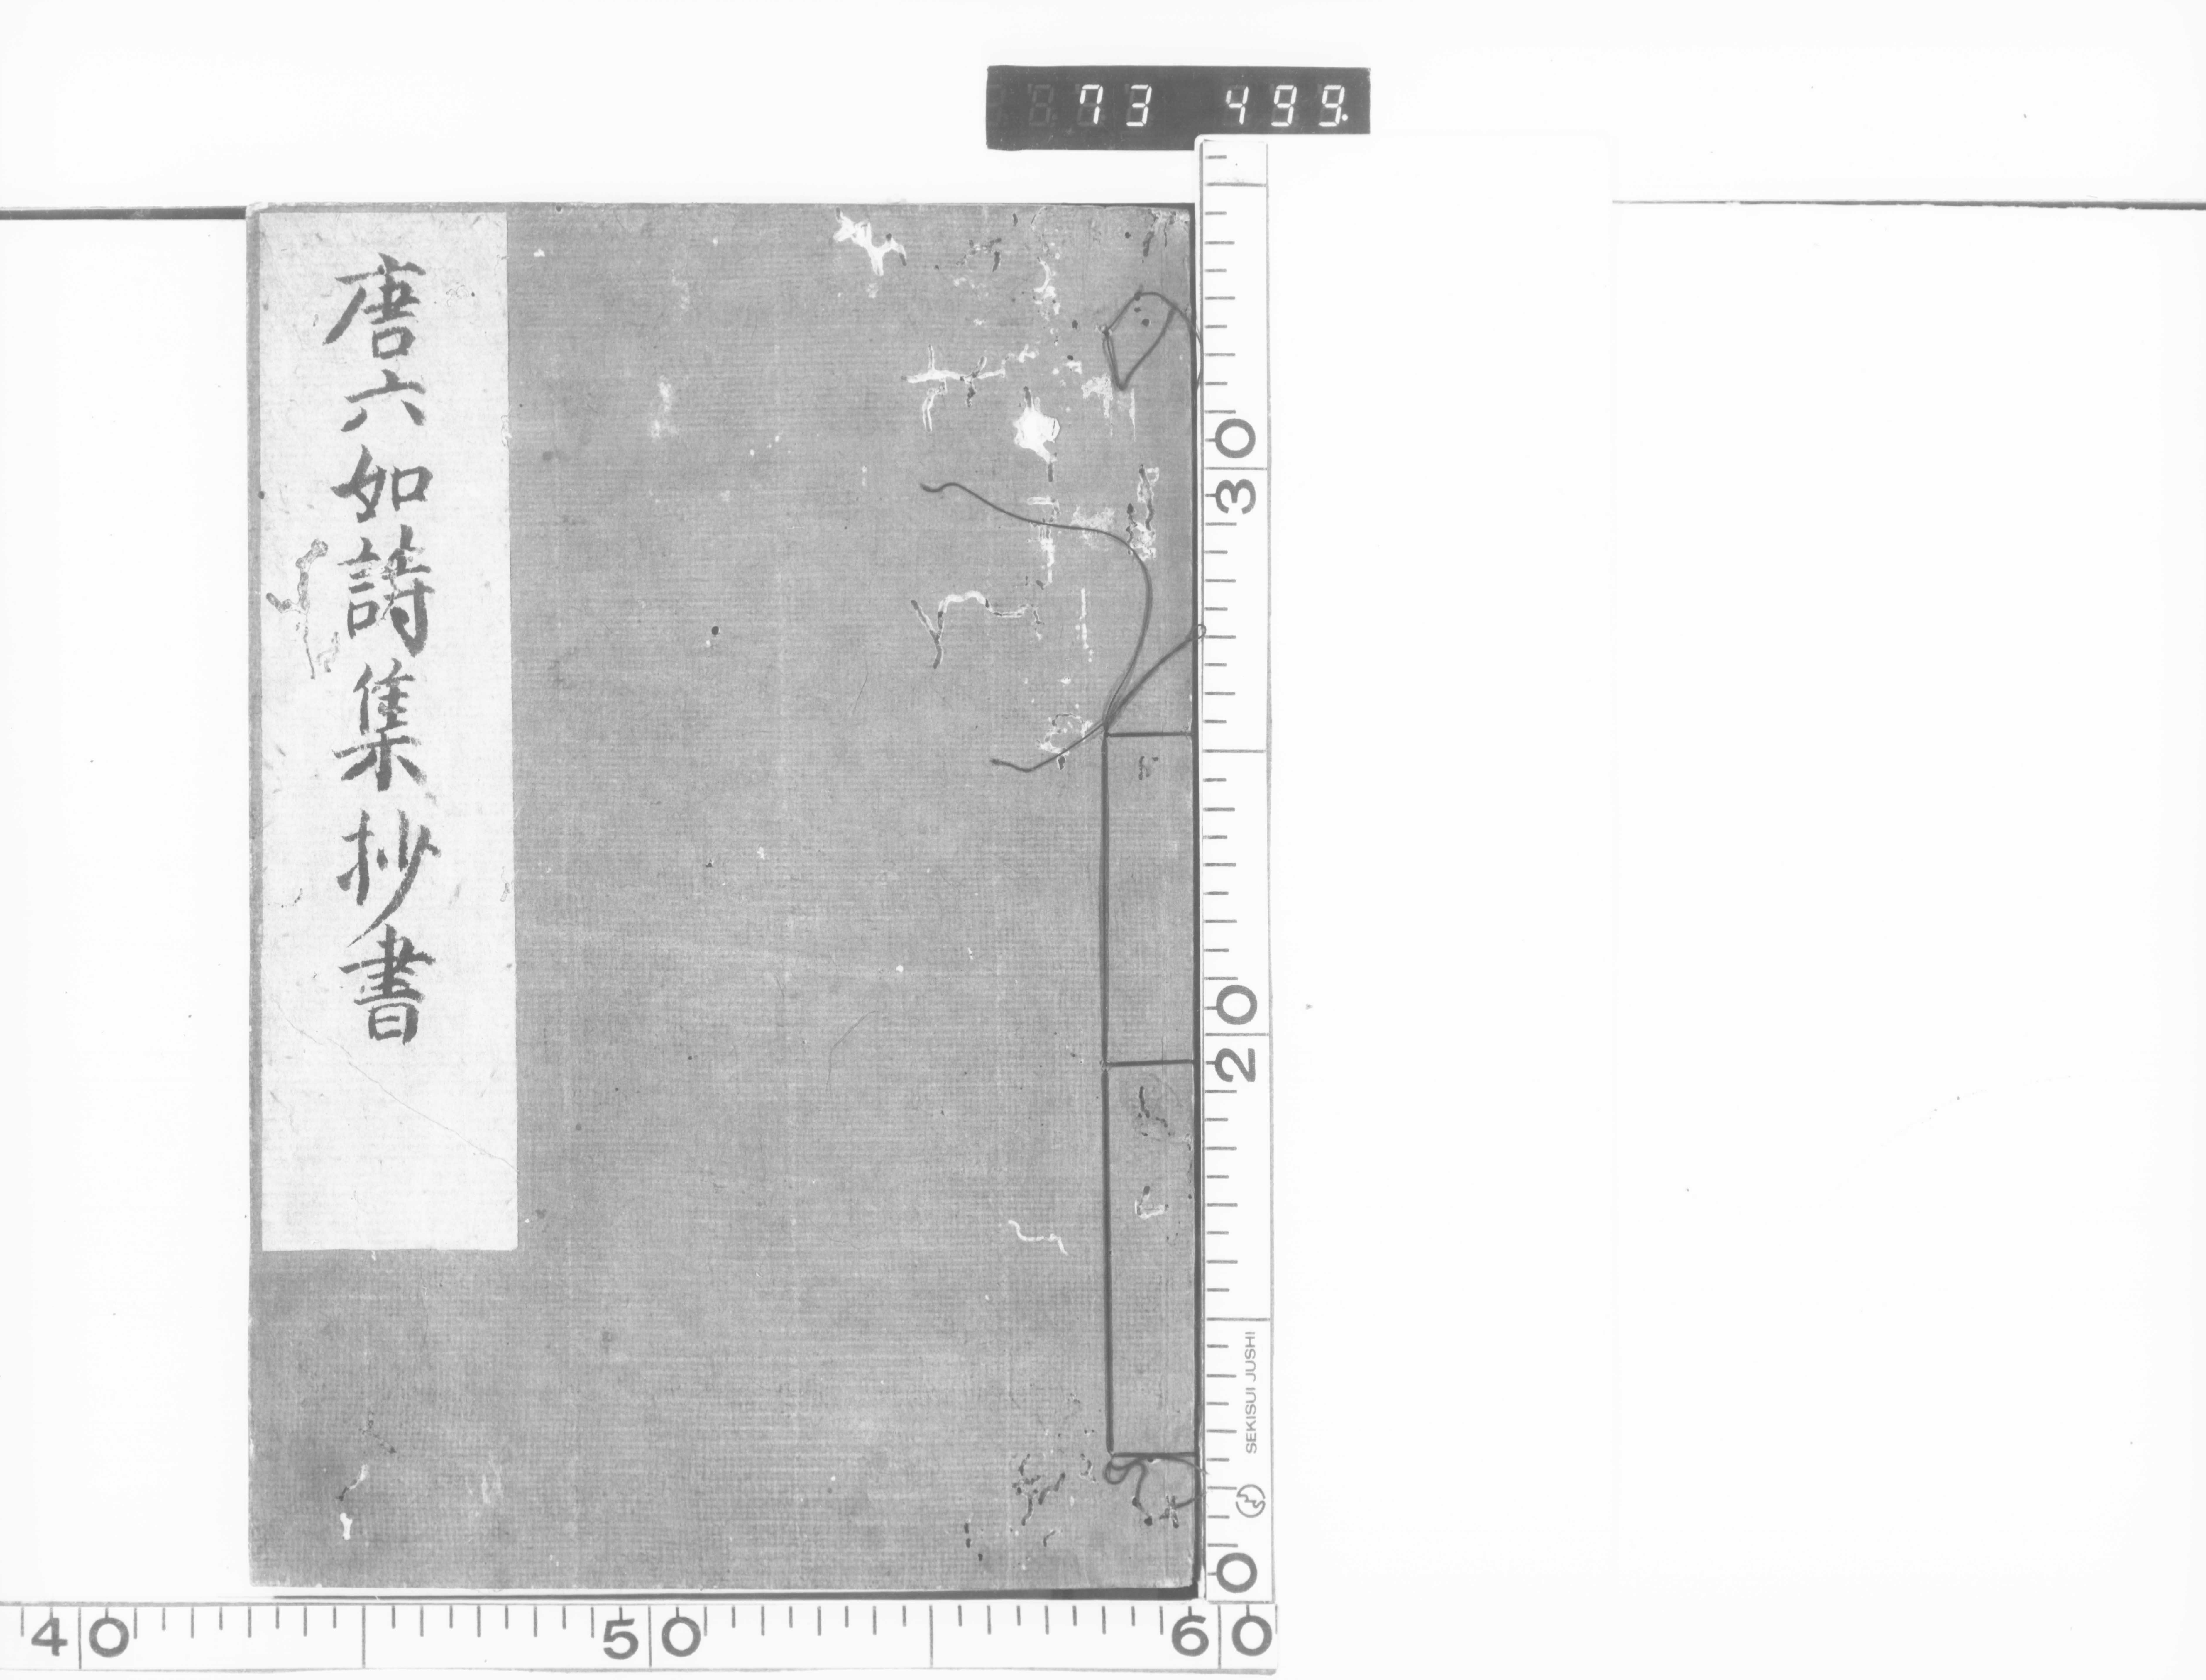 73 499.
唐六如詩集抄書
30
20
SEKISUI JUSHI
0
40
50
60